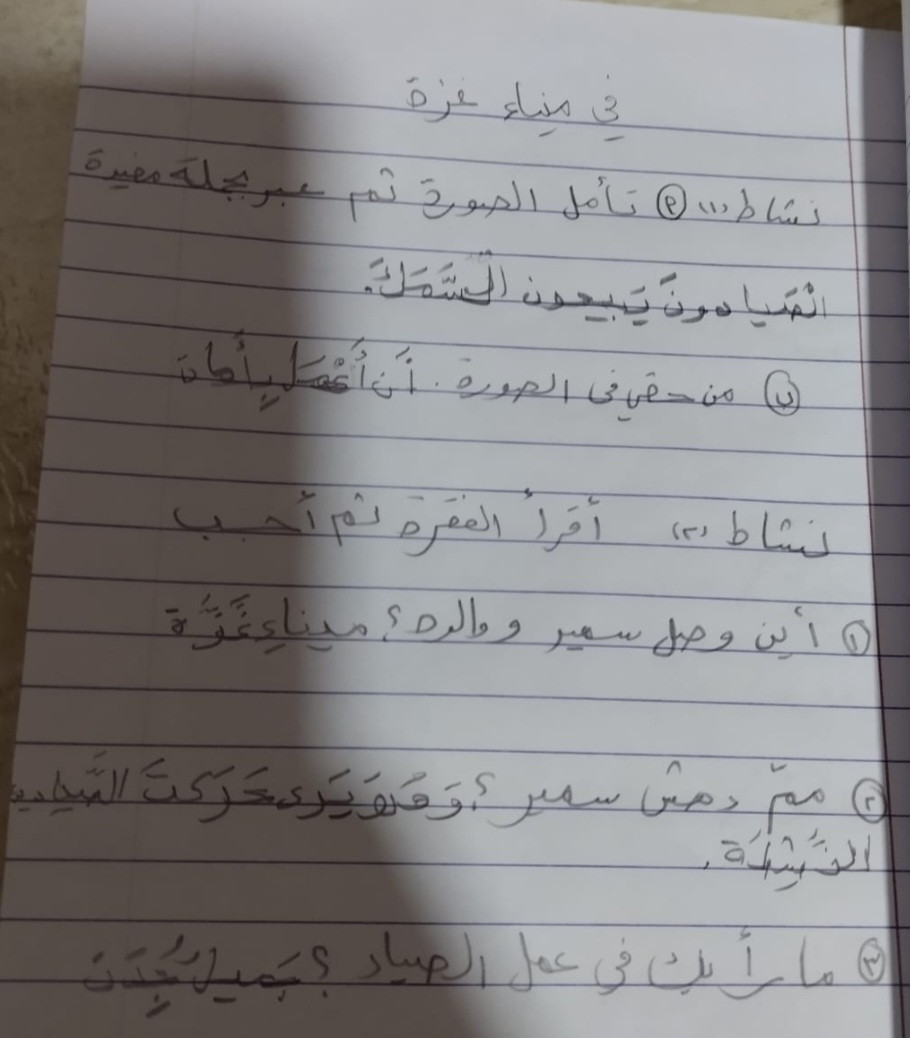 في ميناء غزة
نشاط (١) (P) تأمل الصورة ثم عبر بجملة مفيدة
الْصَيادونَ يَبيعون الْسَّمَكَ.
(ب) من حقي في الصورة. أَنْ أَعْمَل بِأَمان
نشاط (٢) أقرأ الفقرة ثم أجب
(١) أين وصل سمير ووالده؟ ميناءِ غَزَّة
(٢) ممّ دهش سمير؟ وَهُوَ يَرى حَرَكَتَ الصَّيادين
النَّشِطَة.
(٣) ما رأيك في عمل الصياد؟ جَميل جِدَن